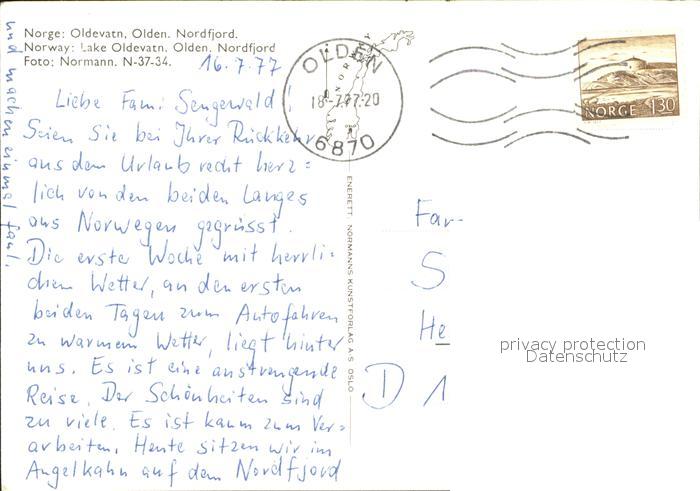 Norge: Oldevatn, Olden, Nordfjord.
Norway: Lake Oldevatn, Olden, Nordfjord
Foto: Normann. N-37-34.
16.7.77
Liebe Fam. Sengewald!
Seien Sie bei Ihrer Rückkehr
aus dem Urlaub recht herz=
lich von den beiden Langes
aus Norwegen gegrüsst.
Die erste Woche mit herrli=
chem Wetter, an den ersten
beiden Tagen zum Autofahren
zu warmem Wetter, liegt hinter
uns. Es ist eine anstrengende
Reise. Der Schönheiten sind
zu viele. Es ist kaum zum Ver=
arbeiten. Heute sitzen wir im
Angelkahn auf dem Nordfjord
und machen einmal faul.
OLDEN
18-7.77.20
6870
NORGE
ENERETT: NORMANNS KUNSTFORLAG A·S OSLO
NORGE 130
Fam
S
He
D 1
privacy protection
Datenschutz